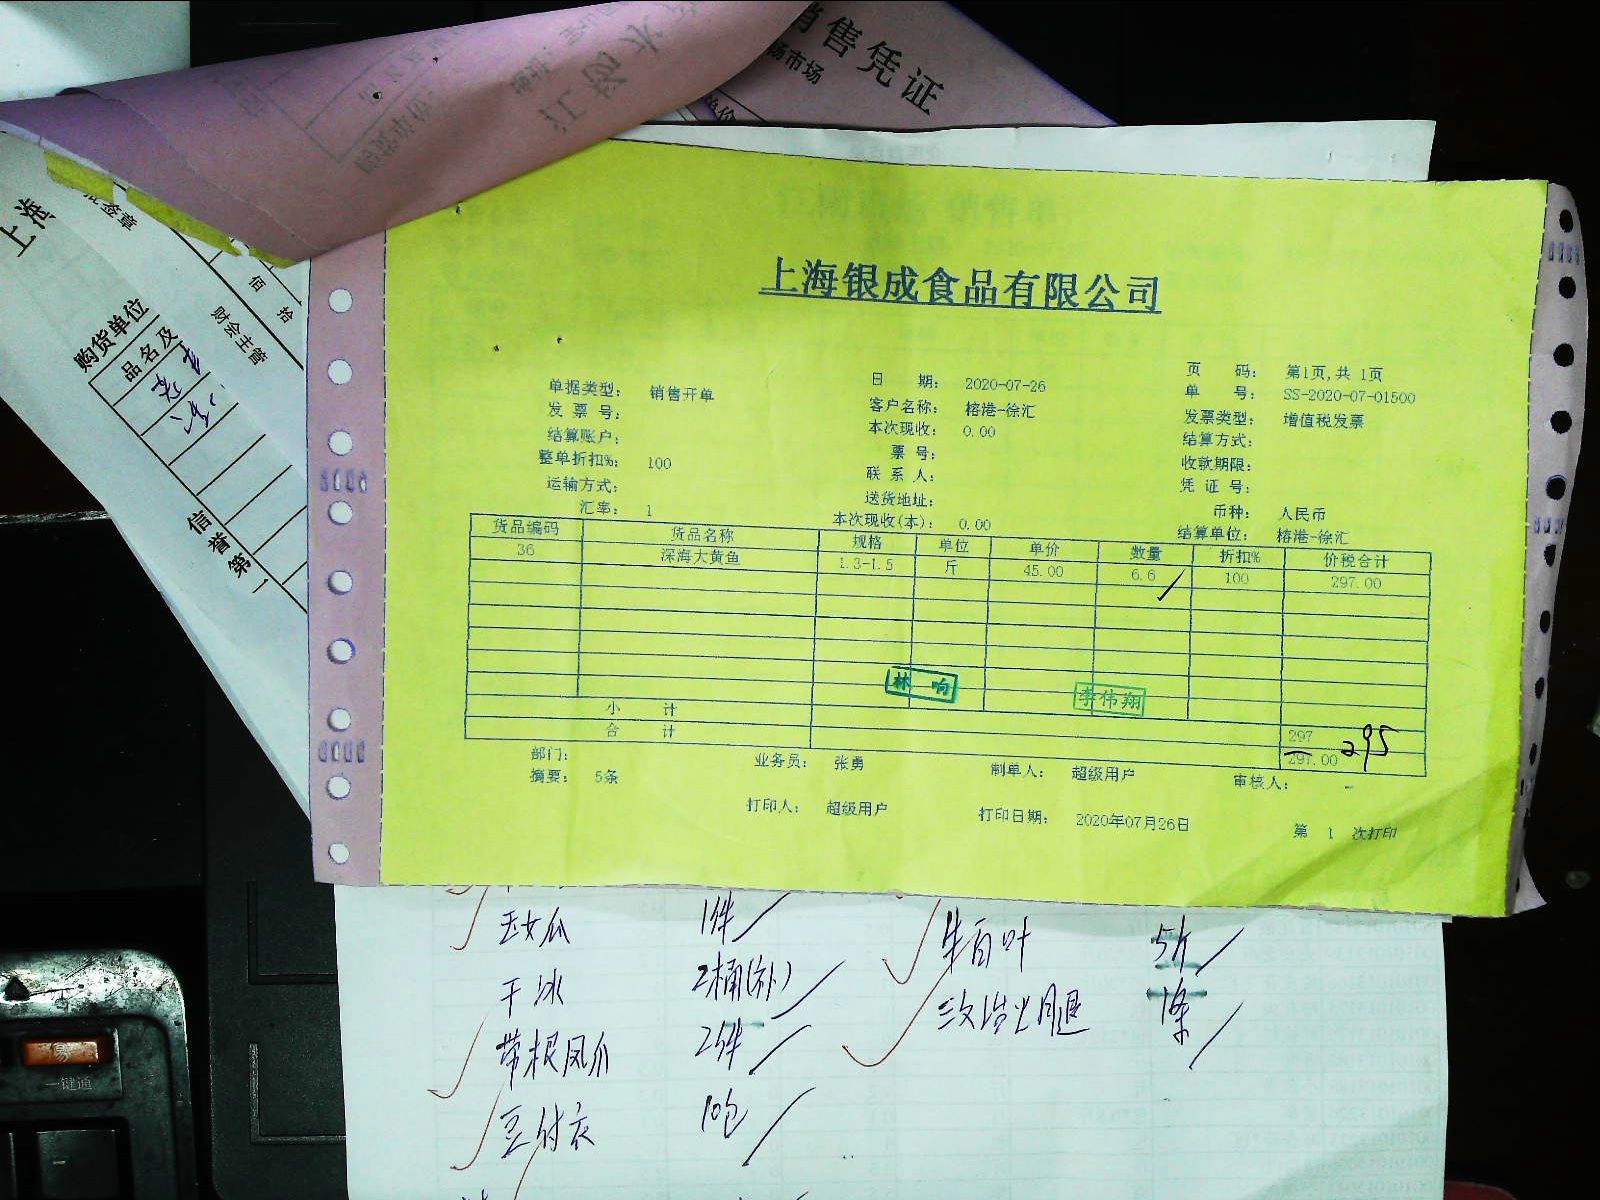 销售凭证
场市场
上海
签章
佰 拾
财会主管
购货单位
品名及
信誉第一
上海银成食品有限公司
单据类型: 销售开单 日 期: 2020-07-26 页 码: 第1页,共 1页
发 票 号: 客户名称: 榕港-徐汇 单 号: SS-2020-07-01500
结算账户: 本次现收: 0.00 发票类型: 增值税发票
整单折扣%: 100 票 号: 结算方式:
运输方式: 联 系 人: 收款期限:
汇率: 1 送货地址: 凭 证 号:
本次现收(本): 0.00 币种: 人民币
结算单位: 榕港-徐汇
货品编码 货品名称 规格 单位 单价 数量 折扣% 价税合计
36 深海大黄鱼 1.3-1.5 斤 45.00 6.6 100 297.00
林 响 李伟翔
小 计 297
合 计 297.00 295
部门: 业务员: 张勇 制单人: 超级用户 审核人:
摘要: 5条
打印人: 超级用户 打印日期: 2020年07月26日 第 1 次打印
玉女瓜 1件 牛百叶 5斤
干冰 2桶(补) 三文治火腿 1条
带根凤爪 2件
豆付衣 10包
一键通